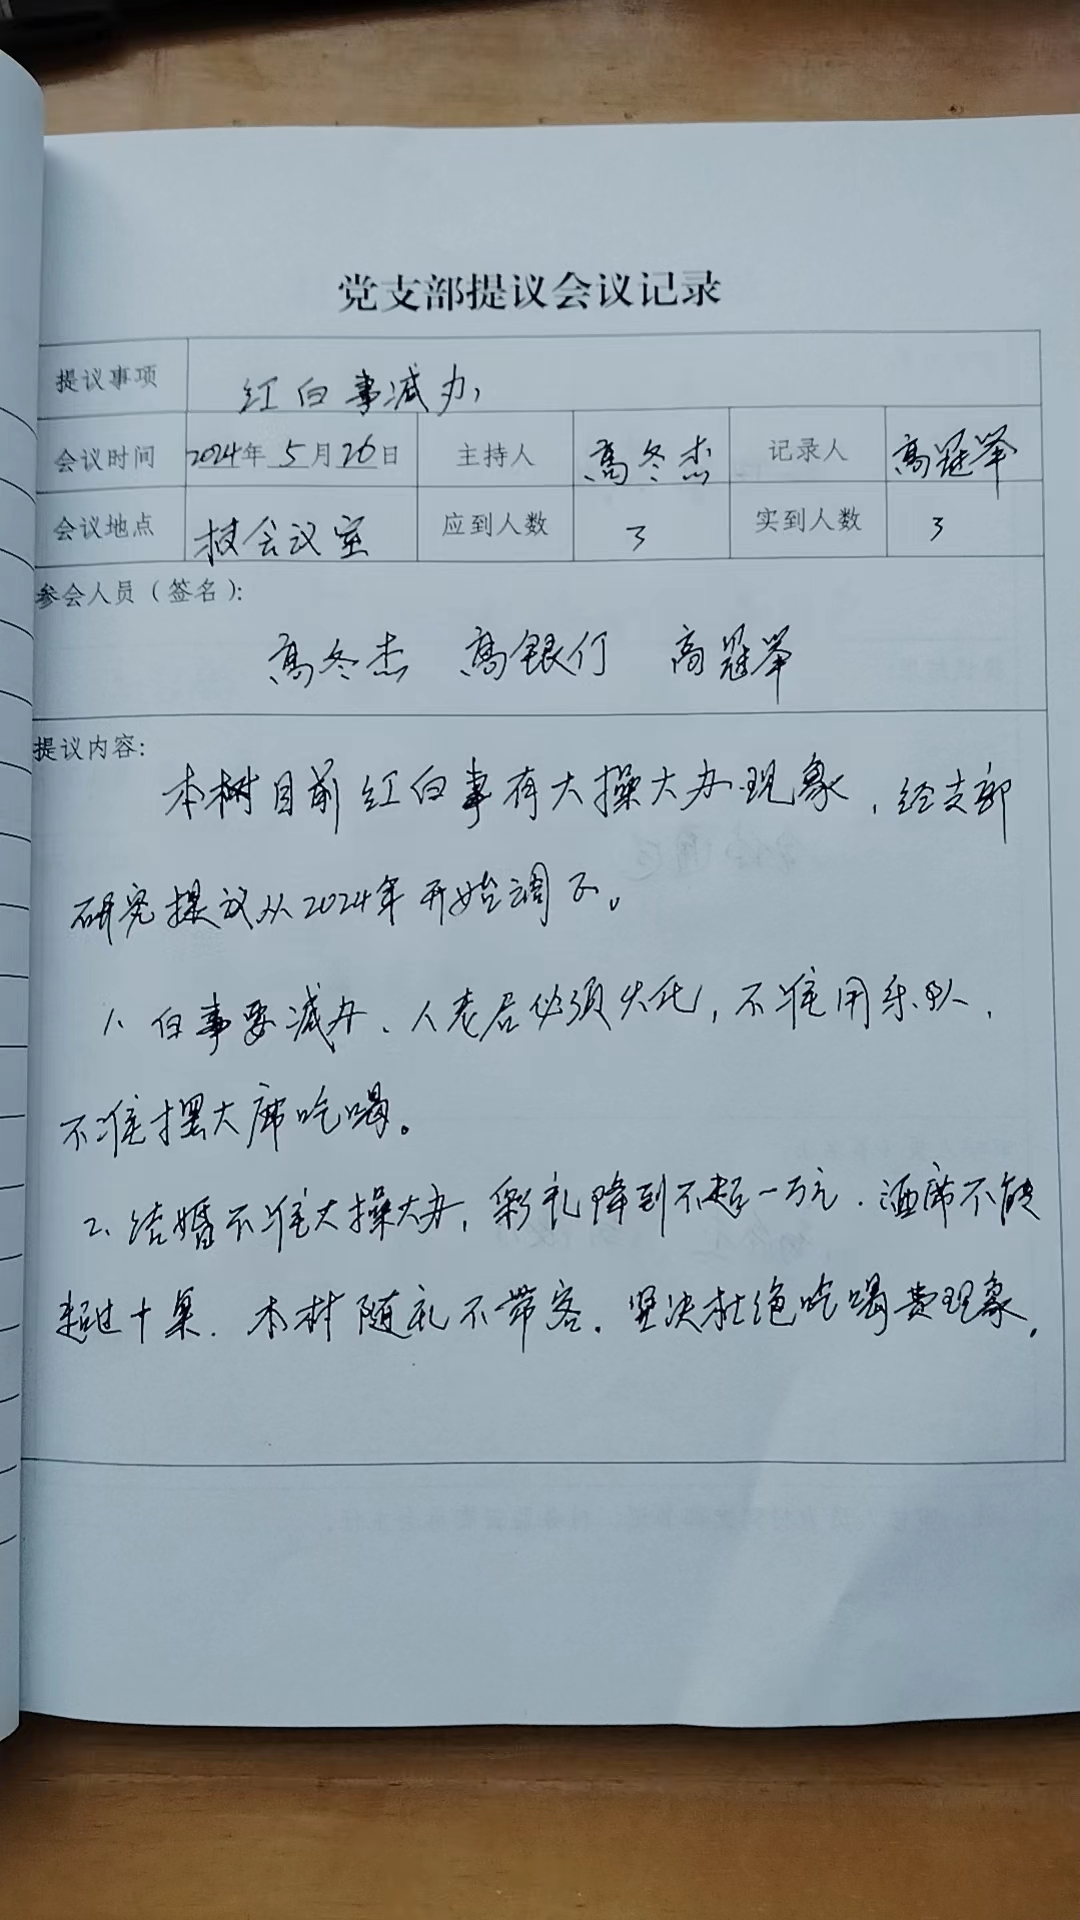 党支部提议会议记录
提议事项 红白事减办
会议时间 2024年 5月26日 主持人 高冬杰 记录人 高冠举
会议地点 村会议室 应到人数 3 实到人数 3
参会人员（签名）:
高冬杰 高银行 高冠举
提议内容:
本树目前红白事有大操大办现象，经支部
研究提议从2024年开始调不。
1、白事要减办、人老后必须火化，不准用乐队、
不准摆大席吃喝。
2、结婚不准大操大办，彩礼降到不超一万元．酒席不能
超过十桌．本村随礼不带客．坚决杜绝吃喝费现象．